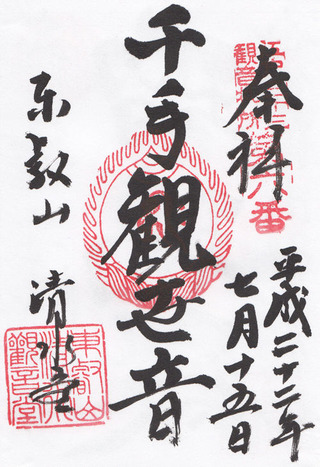 奉拝
平成二十二年
七月十五日
千手観世音
東叡山
清水堂
東叡山
清水
観音堂